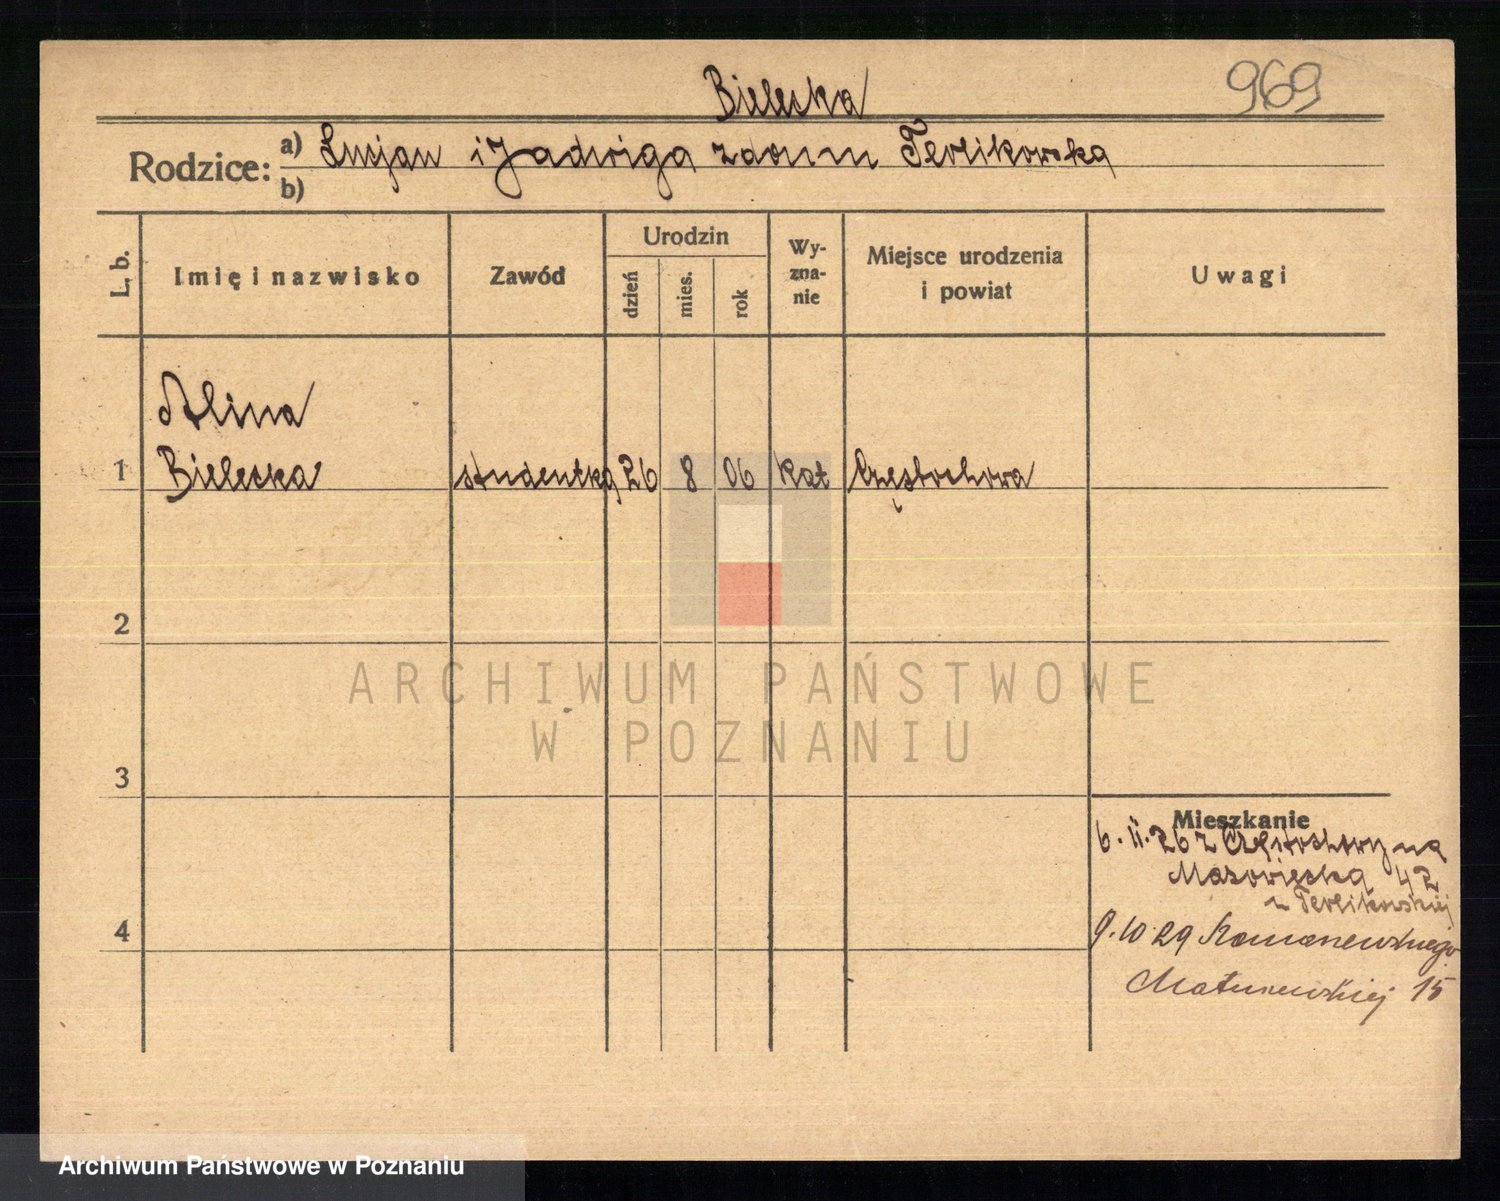 969
Bielecka
Rodzice: a) Lucjan i Jadwiga z domu Terlikowska
b)
L. b.
Imię i nazwisko
Zawód
Urodzin
dzień
mies.
rok
Wy-
zna-
nie
Miejsce urodzenia
i powiat
Uwagi
Alina
1 Bielecka studentka 26 8 06 kat Częstochowa
2
ARCHIWUM PAŃSTWOWE
W POZNANIU
3
Mieszkanie
6. II. 26 z Częstochowy na
Mazowiecką 42
z Terlikowskiej
4
9.10.29 Romanowskiego
15
Archiwum Państwowe w Poznaniu